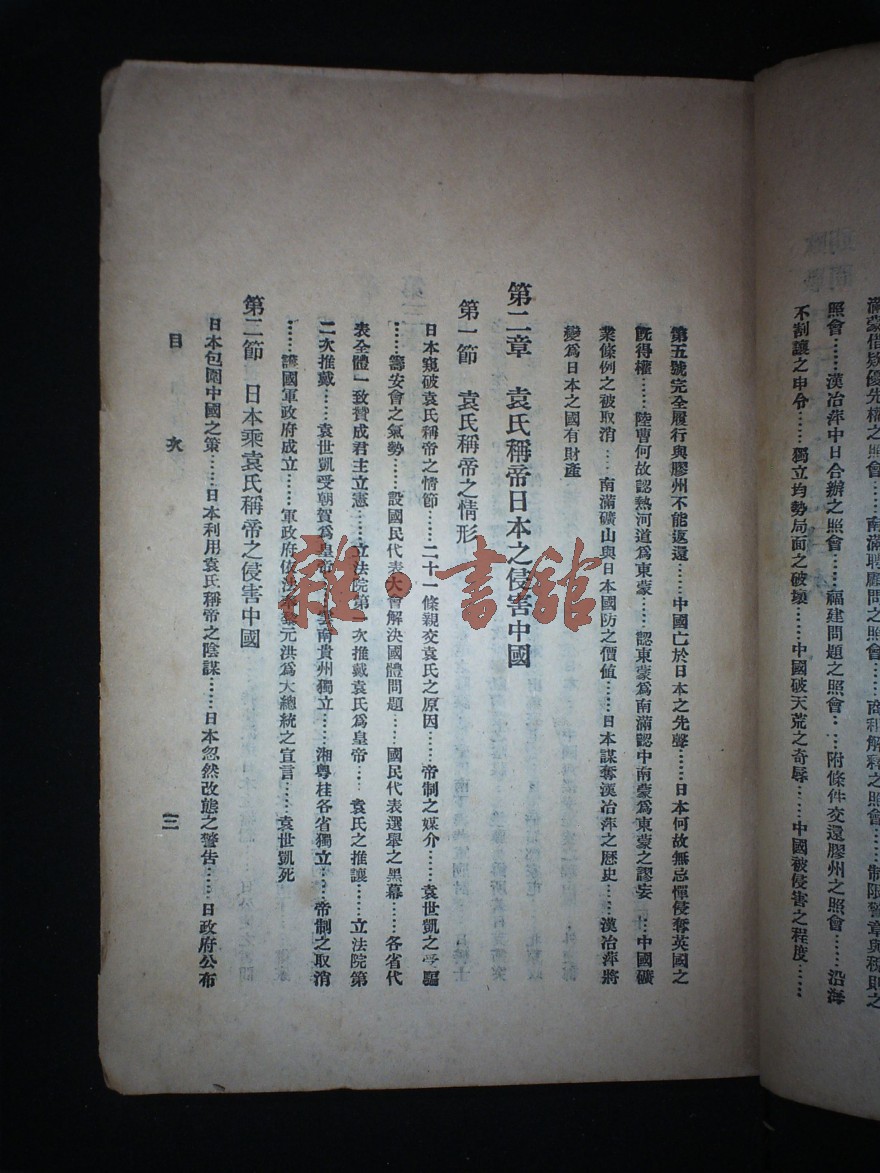 滿蒙借欵優先權之照會……南滿聘顧問之照會……商租解釋之照會……制限警章與稅則之
照會……漢冶萍中日合辦之照會……福建問題之照會……附條件交還膠州之照會……沿海
不割讓之申令……獨立均勢局面之破壞……中國破天荒之奇辱……中國被侵害之程度……
第五號完全履行與膠州不能返還……中國亡於日本之先聲……日本何故無忌憚侵奪英國之
旣得權……陸曹何故認熱河道爲東蒙……認東蒙爲南滿認中南蒙爲東蒙之謬妄……中國礦
業條例之被取消……南滿礦山與日本國防之價值……日本謀奪漢冶萍之歷史……漢冶萍將
變爲日本之國有財產
第二章 袁氏稱帝日本之侵害中國
第一節 袁氏稱帝之情形
日本窺破袁氏稱帝之情節……二十一條親交袁氏之原因……帝制之媒介……袁世凱之受騙
……籌安會之氣勢……設國民代表大會解決國體問題……國民代表選舉之黑幕……各省代
表全體一致贊成君主立憲……立法院第一次推戴袁氏爲皇帝……袁氏之推讓……立法院第
二次推戴……袁世凱受朝賀爲皇帝……雲南貴州獨立……湘粵桂各省獨立……帝制之取消
……護國軍政府成立……軍政府依法奉黎元洪爲大總統之宣言……袁世凱死
第二節 日本乘袁氏稱帝之侵害中國
日本包圍中國之策……日本利用袁氏稱帝之陰謀……日本忽然改態之警告……日政府公布
目 次 三
雜·書館